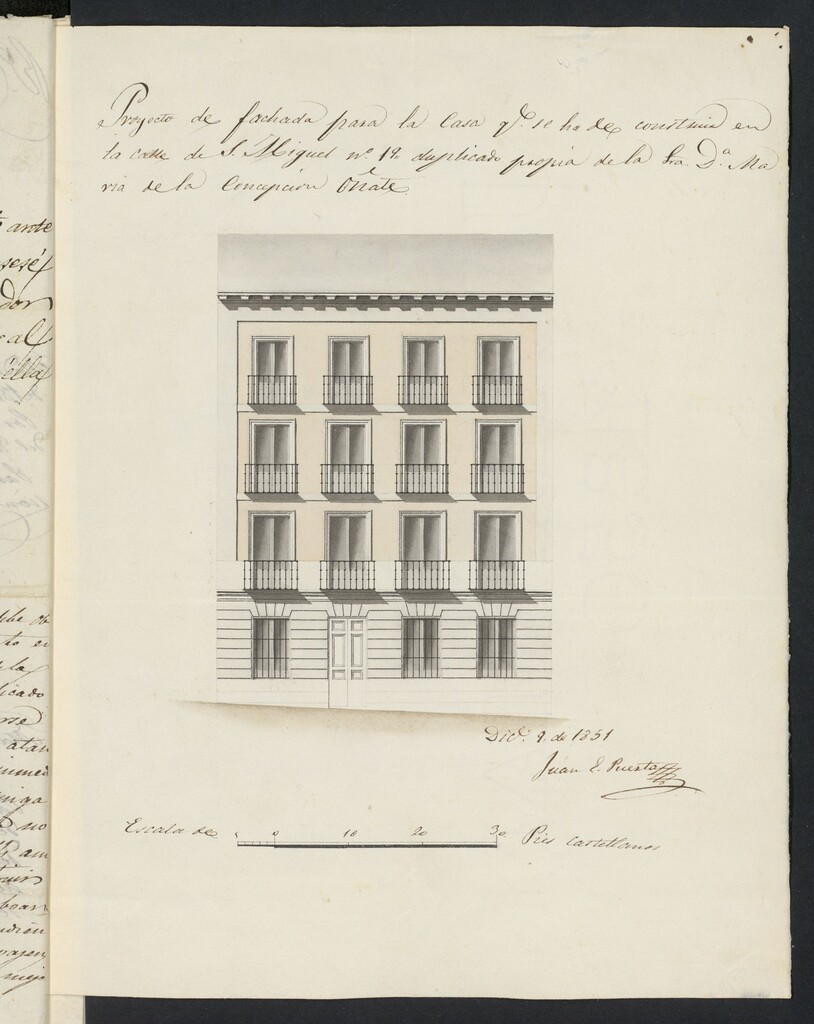 Proyecto de fachada para la Casa qe. se ha de construir en
la calle de S. Miguel nº. 12 duplicado propia de la Sra. Dª. Ma
ria de la Concepcion Oñate
Dice. 9 de 1851
Juan E. Puerta
Escala de 0 10 20 30 Pies castellanos
ante
al
ella
to en
la
licado
no